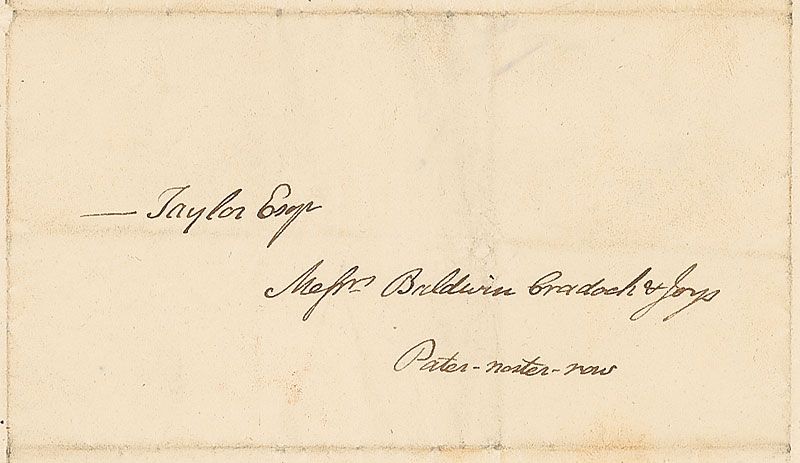 — Taylor Esqr
Messrs Baldwin Cradock & Joys
Pater-noster-row